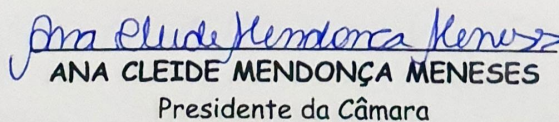 Ana Cleide Mendonca Meneses
ANA CLEIDE MENDONÇA MENESES
Presidente da Câmara